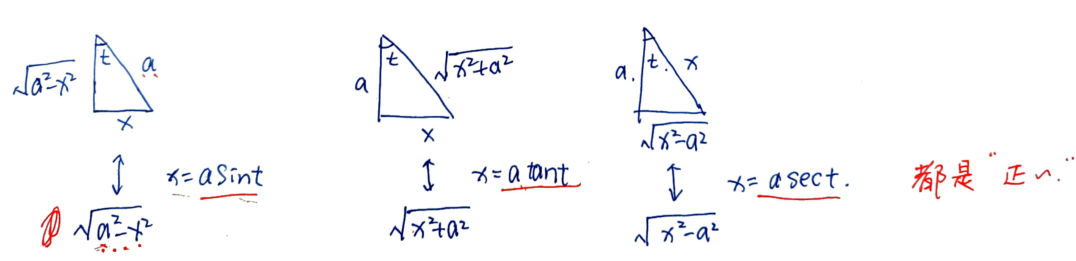 t
a
√(a²-x²)
x
x = a sin t
√(a²-x²)
t
√(x²+a²)
a
x
x = a tan t
√(x²+a²)
t
x
a.
√(x²-a²)
x = a sec t.
√(x²-a²)
都是 "正~."